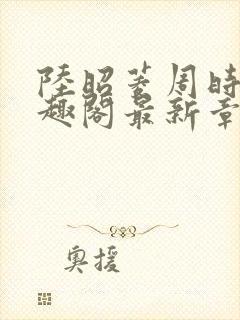 陸昭菱周時
趣閣最新章
奧援